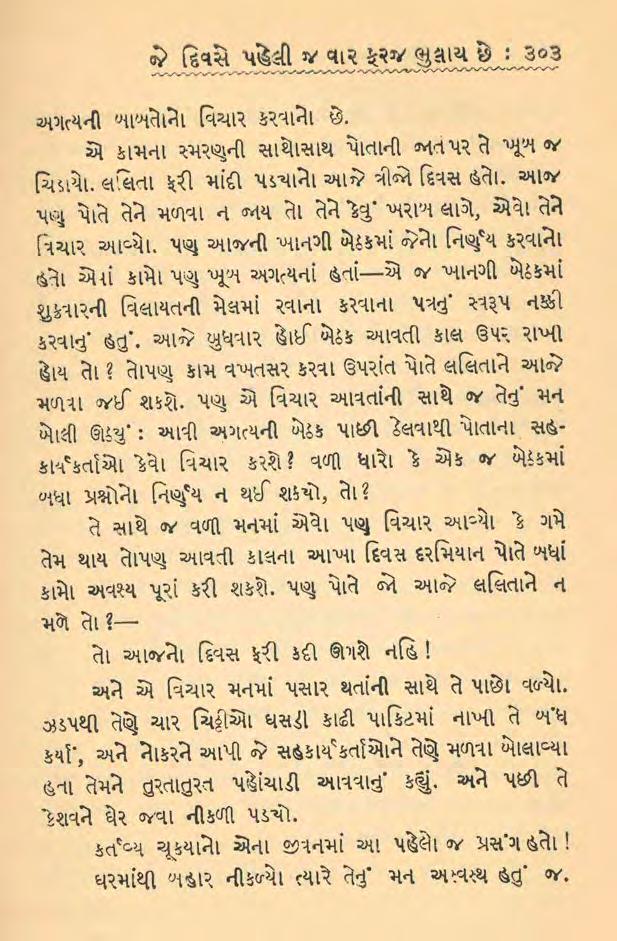 જે દિવસે પહેલી જ વાર ફરજ ભુલાય છે : ૩૦૩
અગત્યની બાબતોનો વિચાર કરવાનો છે.
એ કામના સ્મરણની સાથોસાથ પોતાની જાત પર તે ખૂબ જ
ચિડાયો. લલિતા ફરી માંદી પડયાનો આજે ત્રીજો દિવસ હતો. આજ
પણ પોતે તેને મળવા ન જાય તો તેને કેવું ખરાબ લાગે, એવો તેને
વિચાર આવ્યો. પણ આજની ખાનગી બેઠકમાં જેનો નિર્ણય કરવાનો
હતો એવાં કામો પણ ખૂબ અગત્યનાં હતાં—એ જ ખાનગી બેઠકમાં
શુક્રવારની વિલાયતની મેલમાં રવાના કરવાના પત્રનું સ્વરૂપ નક્કી
કરવાનું હતું. આજે બુધવાર હોઈ બેઠક આવતી કાલ ઉપર રાખી
હોય તો? તોપણ કામ વખતસર કરવા ઉપરાંત પોતે લલિતાને આજે
મળવા જઈ શકશે. પણ એ વિચાર આવતાંની સાથે જ તેનું મન
બોલી ઊઠયું : આવી અગત્યની બેઠક પાછી ઠેલવાથી પોતાના સહ-
કાર્યકર્તાઓ કેવો વિચાર કરશે? વળી ધારો કે એક જ બેઠકમાં
બધા પ્રશ્નોનો નિર્ણય ન થઈ શકયો, તો?
તે સાથે જ વળી મનમાં એવો પણ વિચાર આવ્યો કે ગમે
તેમ થાય તોપણ આવતી કાલના આખા દિવસ દરમિયાન પોતે બધાં
કામો અવશ્ય પૂરાં કરી શકશે. પણ પોતે જો આજે લલિતાને ન
મળે તો?—
તો આજનો દિવસ ફરી કદી ઊગશે નહિ!
અને એ વિચાર મનમાં પસાર થતાંની સાથે તે પાછો વળ્યો.
ઝડપથી તેણે ચાર ચિઠ્ઠીઓ ઘસડી કાઢી પાકિટમાં નાખી તે બંધ
કર્યાં, અને નોકરને આપી જે સહકાર્યકર્તાઓને તેણે મળવા બોલાવ્યા
હતા તેમને તુરતાતુરત પહોંચાડી આવવાનું કહ્યું. અને પછી તે
કેશવને ઘેર જવા નીકળી પડયો.
કર્તવ્ય ચૂકયાનો એના જીવનમાં આ પહેલો જ પ્રસંગ હતો!
ઘરમાંથી બહાર નીકળ્યો ત્યારે તેનું મન અસ્વસ્થ હતું જ.